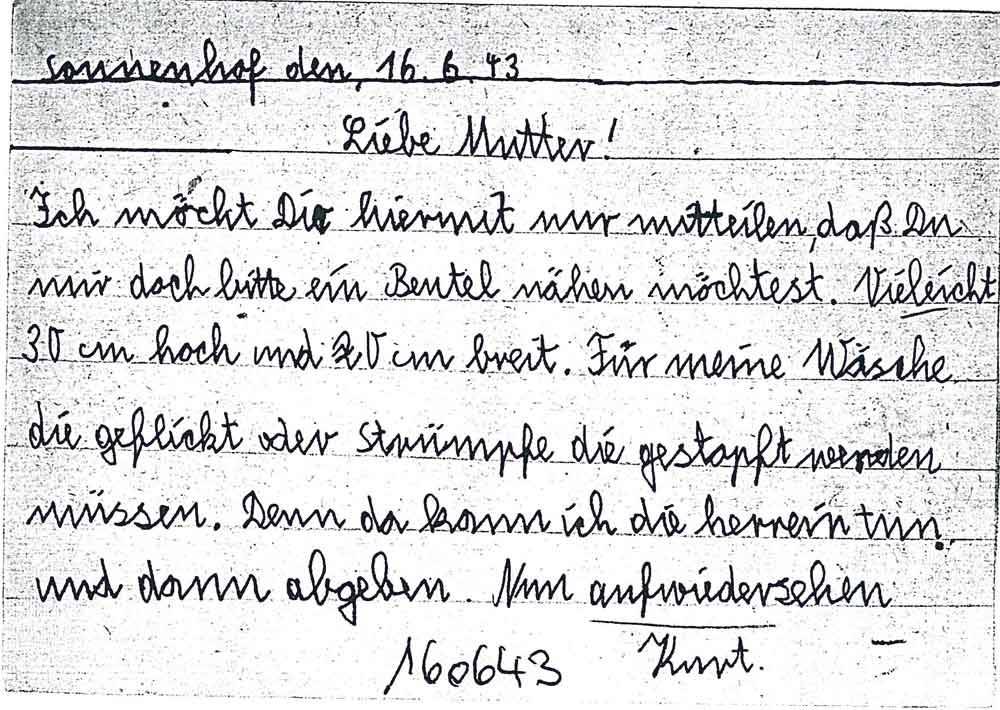 Sonnenhof den, 16.6.43
Liebe Mutter!
Ich möcht Dir hiermit nur mitteilen, daß Du
mir doch bitte ein Beutel nähen möchtest. Vieleicht
30 cm hoch und 20 cm breit. Für meine Wäsche
die geflickt oder Strümpfe die gestopft werden
müssen. Denn da kann ich die herrein tun.
und dann abgeben. Nun aufwiedersehen
Kurt.
160643